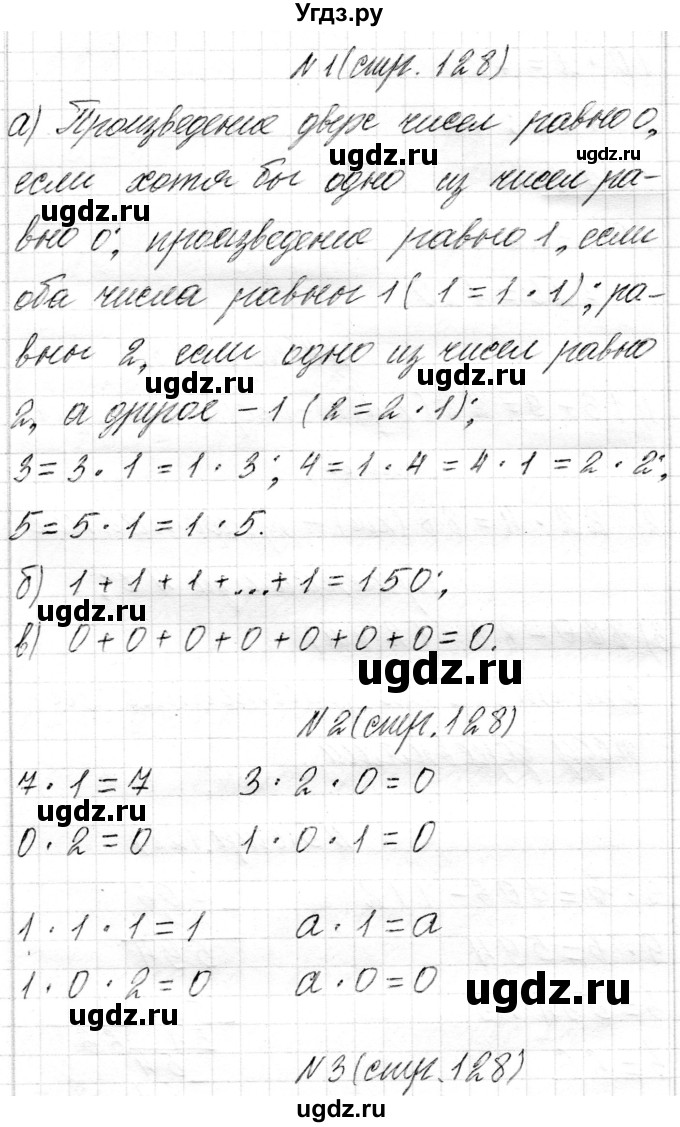 Угдз.ру
№1 (стр. 128)
а) Произведение двух чисел равно 0,
ugdz.ru ugdz.ru
если хотя бы одно из чисел ра-
ugdz.ru
вно 0; произведение равно 1, если
оба числа равны 1 (1 = 1 · 1); ра-
вны 2, если одно из чисел равно
ugdz.ru ugdz.ru
2, а другое – 1 (2 = 2 · 1);
3 = 3 · 1 = 1 · 3; 4 = 1 · 4 = 4 · 1 = 2 · 2;
5 = 5 · 1 = 1 · 5.
б) 1 + 1 + 1 + ... + 1 = 150;
ugdz.ru
в) 0 + 0 + 0 + 0 + 0 + 0 + 0 = 0.
ugdz.ru
№2 (стр. 128)
7 · 1 = 7 3 · 2 · 0 = 0
ugdz.ru
0 · 2 = 0 1 · 0 · 1 = 0
1 · 1 · 1 = 1 a · 1 = a
1 · 0 · 2 = 0 a · 0 = 0
ugdz.ru
ugdz.ru
№3 (стр. 128)
ugdz.ru